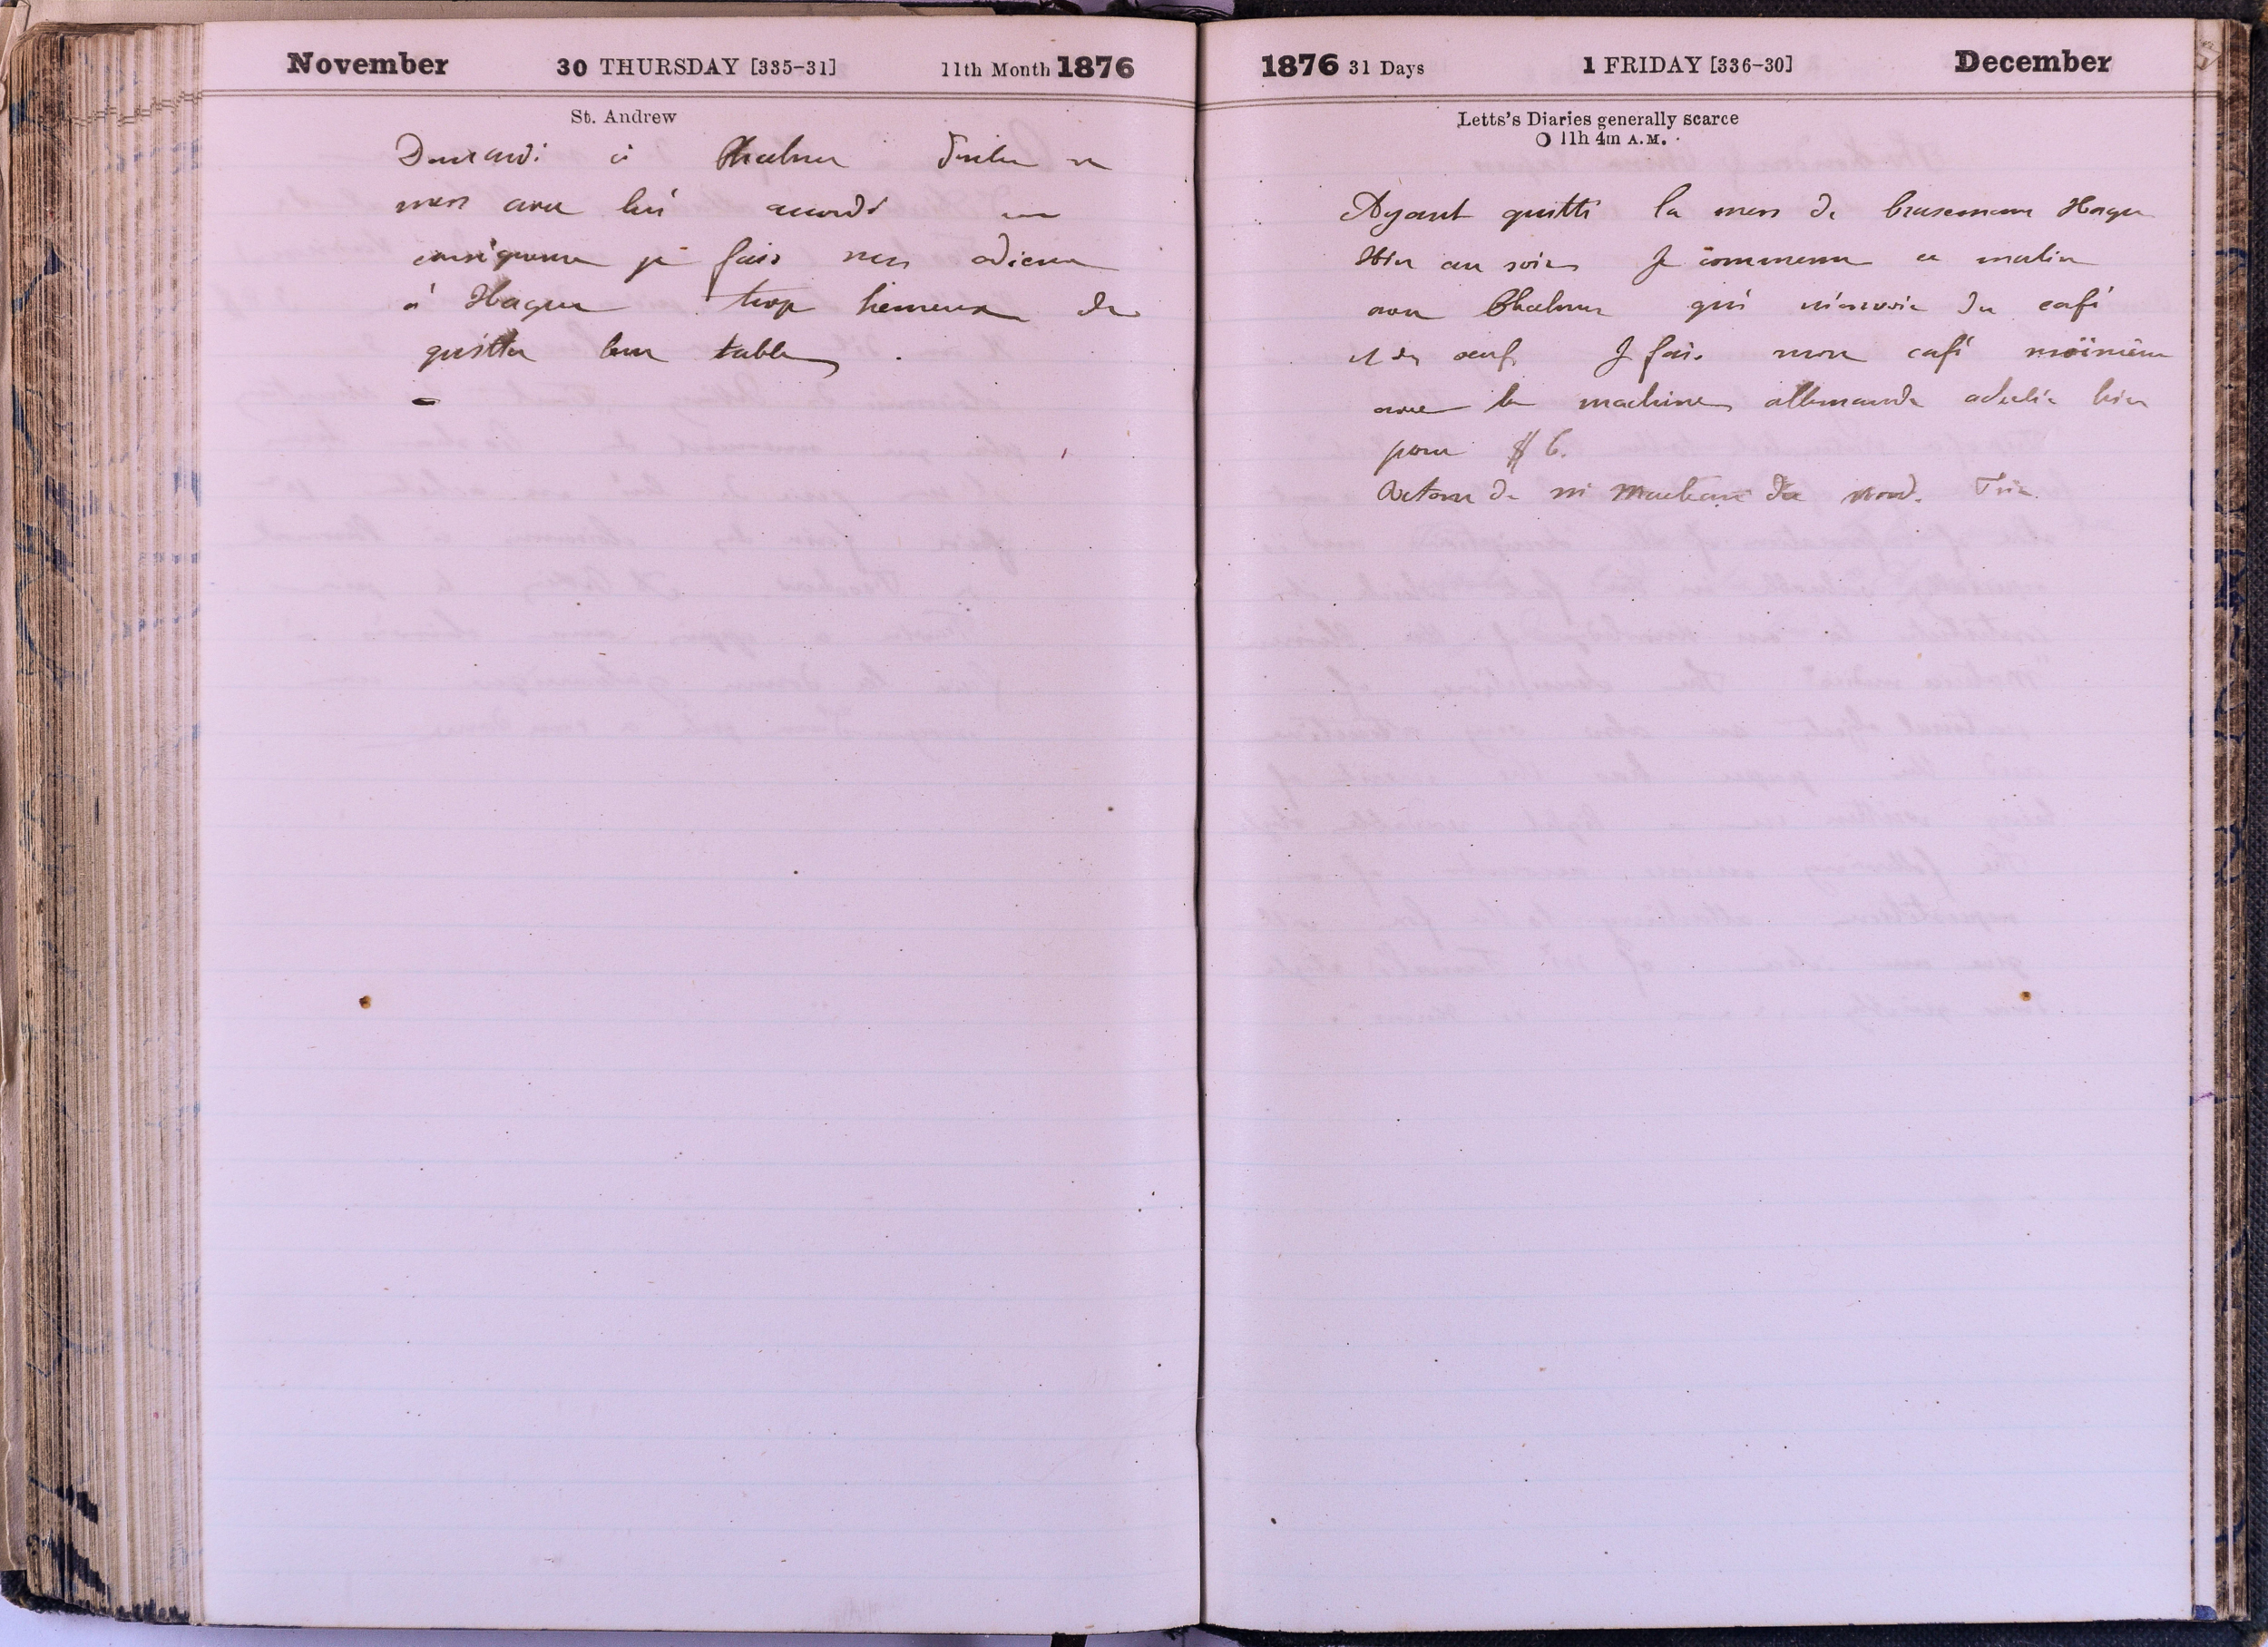 November 30 THURSDAY [335-31] 11th Month 1876
St. Andrew
Demandé à Chalmer d'entrer en
mess avec lui accordé en
conséquence je fais mes adieux
à Hague trop heureux de
quitter leur table .
1876 31 Days 1 FRIDAY [336-30] December
Letts's Diaries generally scarce
O 11h 4m A.M.
Ayant quitté la mess de Hague
Hier au soir Je commence ce matin
avec Chalmer qui m'envoie du café
et des oeufs Je fais mon café moimême
avec la machine allemande achetée hier
pour $ 6.
Retour de du nord.